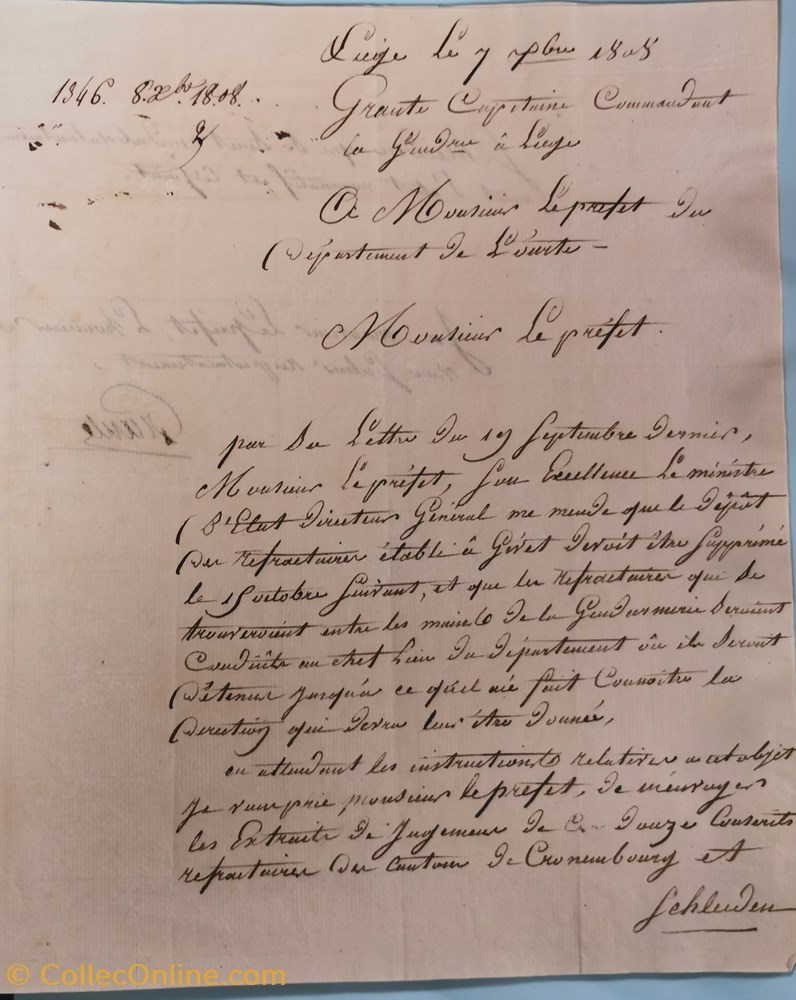 Liége le 7 xbre 1808
1346. 8. xbre. 1808.
Graule Capitaine Commandant
la Gendrie à Liége
A Monsieur Le préfet du
Département de L'ourte -
Monsieur Le préfet.
par Sa Lettre du 19 Septembre dernier,
Monsieur Le préfet, Son Excellence Le ministre
D'Etat Directeur Général me mende que le dépôt
des refractaires établi à Givet devoit être Supprimé
le 15 octobre Suivant, et que les refractaires qui Se
trouveroient entre les mains de la Gendarmerie Seroient
Conduits au chef Lieu du département où ils Seront
Détenus jusqu'a ce qu'il aié fait Connoitre la
Direction qui devra leur être donnée,
en attendant les instructions relatives a cet objet
Je vous prie, monsieur le préfet, de m'envoyer
les Extraits de Jugemens de douze Conscrits
refractaires des cantons de Cronembourg et
Schleiden
© CollecOnline.com